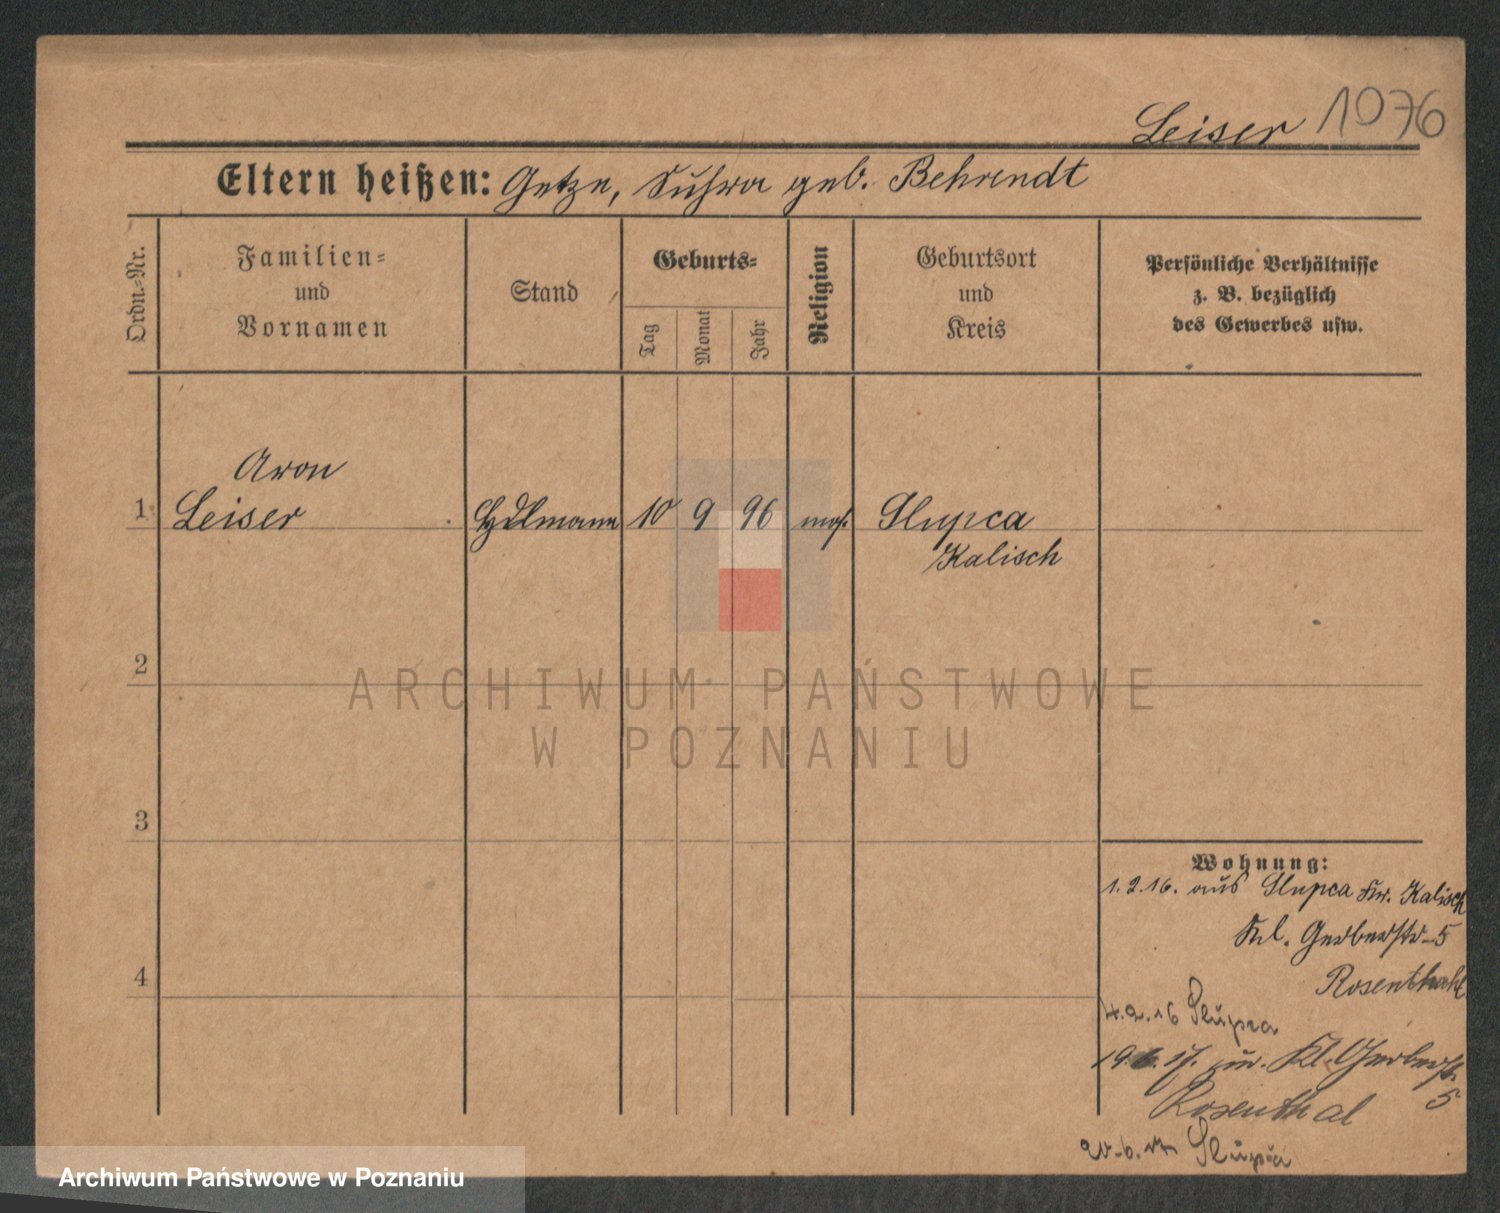 Leiser 1076
Eltern heißen: Getze, Suhra geb. Behrendt
Ordn.-Nr.
Familien-
und
Vornamen
Stand
Geburts-
Tag
Monat
Jahr
Religion
Geburtsort
und
Kreis
Persönliche Verhältnisse
z. B. bezüglich
des Gewerbes usw.
Aron
1 Leiser Hdlmann 10 9 96 mos. Slupca
Kalisch
2
ARCHIWUM PAŃSTWOWE
W POZNANIU
3
4
Wohnung:
1.2.16. aus Slupca Kr. Kalisch
Kl. Gerberstr. 5
Rosenthahl
4.2.16 Slupca
19.6.17. zur. Kl. Gerberstr.
5
Rosenthal
20.6.17 Slupca
Archiwum Państwowe w Poznaniu